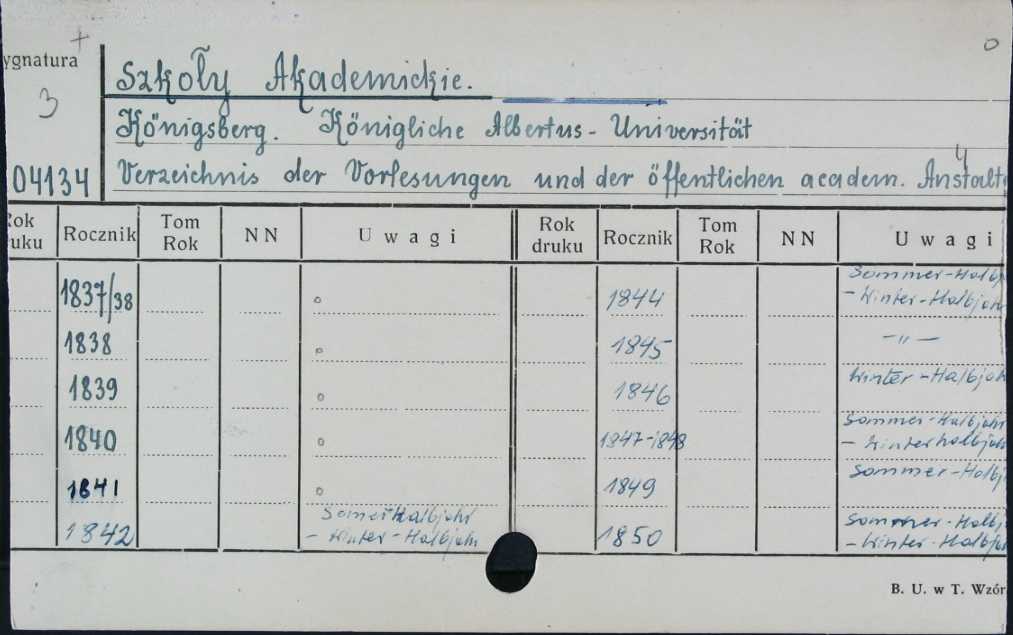 ygnatura +
o
3
Szkoły Akademickie.
Königsberg. Königliche Albertus-Universität
4
04134 Verzeichnis der Vorlesungen und der öffentlichen academ. Anstalte
Rok druku Rocznik Tom Rok NN Uwagi Rok druku Rocznik Tom Rok NN Uwagi
1837/38 o 1844 Sommer-Halbj
- Winter-Halbjahr
1838 o 1845 -"-
1839 o 1846 Winter-Halbjah
1840 o 1847-1848 Sommer-Halbjahr
- Winterhalbjah
1841 o 1849 Sommer-Halbj
1842 SomerHalbjahr
- Winter-Halbjahr 1850 Sommer-Halbj
- Winter-Halbjah
B. U. w T. Wzór